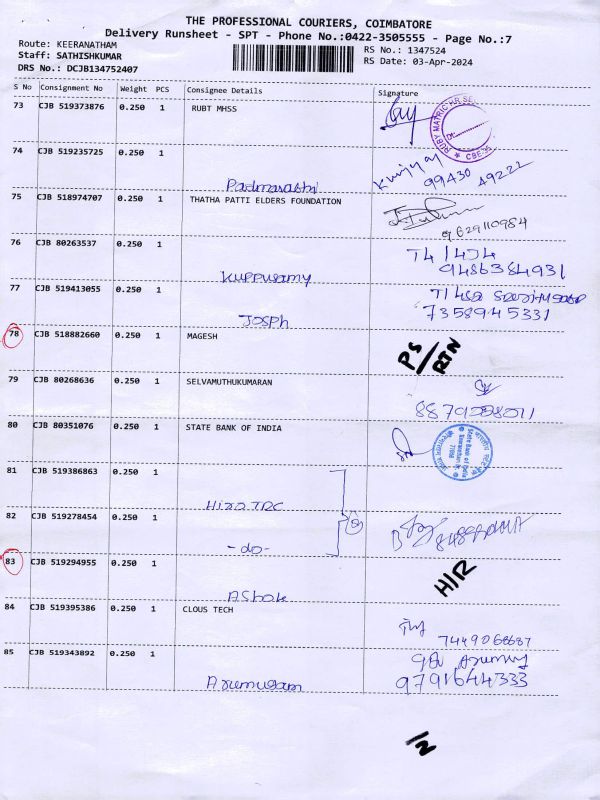 THE PROFESSIONAL COURIERS, COIMBATORE
Delivery Runsheet - SPT - Phone No.:0422-3505555 - Page No.:7
Route: KEERANATHAM
RS No.: 1347524
Staff: SATHISHKUMAR
RS Date: 03-Apr-2024
DRS No.: DCJB134752407
S No Consignment No Weight PCS Consignee Details Signature
73 CJB 519373876 0.250 1 RUBT MHSS
RUBY MATRIC HR SE
CBE-35
74 CJB 519235725 0.250 1
Padmavathi
99430 49222
75 CJB 518974707 0.250 1 THATHA PATTI ELDERS FOUNDATION
9629110984
76 CJB 80263537 0.250 1
T4/474
Kuppusamy
9486384931
77 CJB 519413055 0.250 1
Joseph
7358945331
78 CJB 518882660 0.250 1 MAGESH
PS/RTN
79 CJB 80268636 0.250 1 SELVAMUTHUKUMARAN
80 CJB 80351076 0.250 1 STATE BANK OF INDIA
State Bank of India
81 CJB 519386863 0.250 1
Hiza TRC
82 CJB 519278454 0.250 1
-do-
83 CJB 519294955 0.250 1
H/R
Ashok
84 CJB 519395386 0.250 1 CLOUS TECH
7449068687
85 CJB 519343892 0.250 1
Arumugam
9791644333